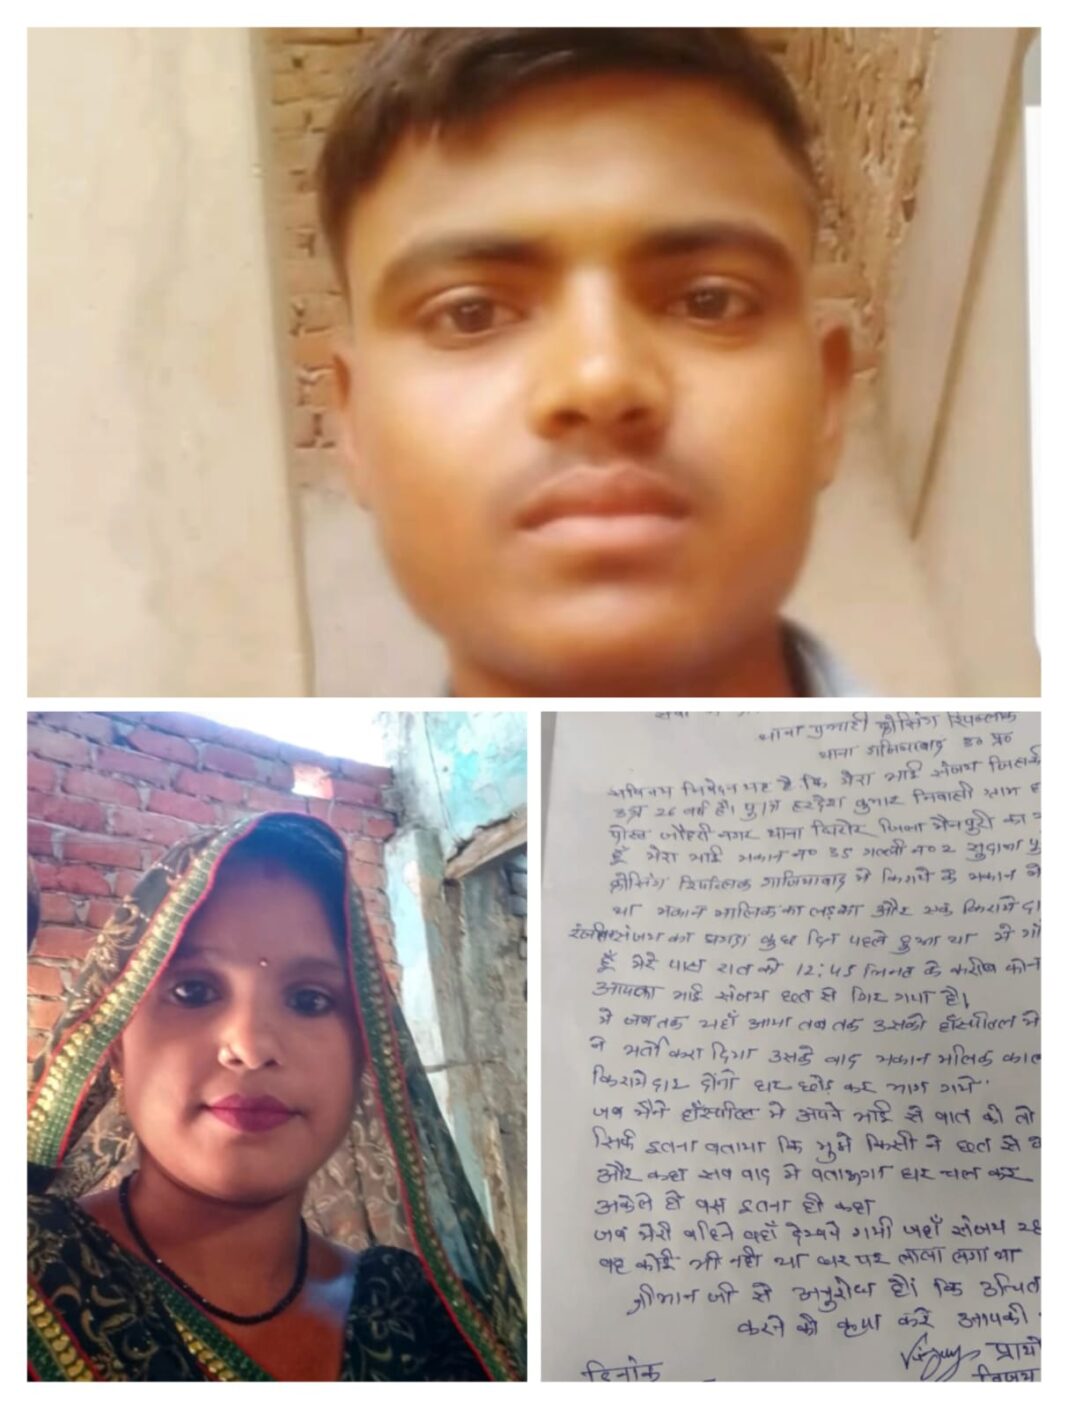 थाना प्रभारी क्रोसिंग रिपब्लिक
थाना गाजियाबाद उ० प्र०
सविनय निवेदन यह है कि मेरा भाई संजय जिसकी
उम्र 26 वर्ष है। पुत्र हरदेश कुमार निवासी ग्राम
पोस्ट जौहरी नगर थाना घिरोर जिला मैनपुरी का
हूँ मेरा भाई मकान न० 35 गल्ली न० 2 सुदामा पु
क्रोसिंग रिपब्लिक गाजियाबाद में किराये के मकान में
था मकान मालिक का लड़का और एक किरायेदा
संजय का झगड़ा कुछ दिन पहले हुआ था मैं
हूँ मेरे पास रात को 12:45 मिनट के करीब फोन
आपका भाई संजय छत से गिर गया है।
मैं जब तक यहाँ आया तब तक उसको हॉस्पीटल में
ने भर्ती करा दिया उसके बाद मकान मलिक का ल
किरायेदार दोनों घर छोड़ कर भाग गये
जब मैंने हॉस्पीटल में अपने भाई से बात की तो
सिर्फ इतना बताया कि मुझे किसी ने छत से
और कहा सब बाद में बताऊगा घर चल कर
अकेले में बस इतना ही कहा
जब मेरी बहिने वहाँ देखने गयी जहाँ संजय रह
वह कोई भी नही था घर पर ताला लगा था
श्रीमान जी से अनुरोध है। कि उचित
करने की कृपा करें आपकी
Vijay प्रार्थी
दिनांक विजय